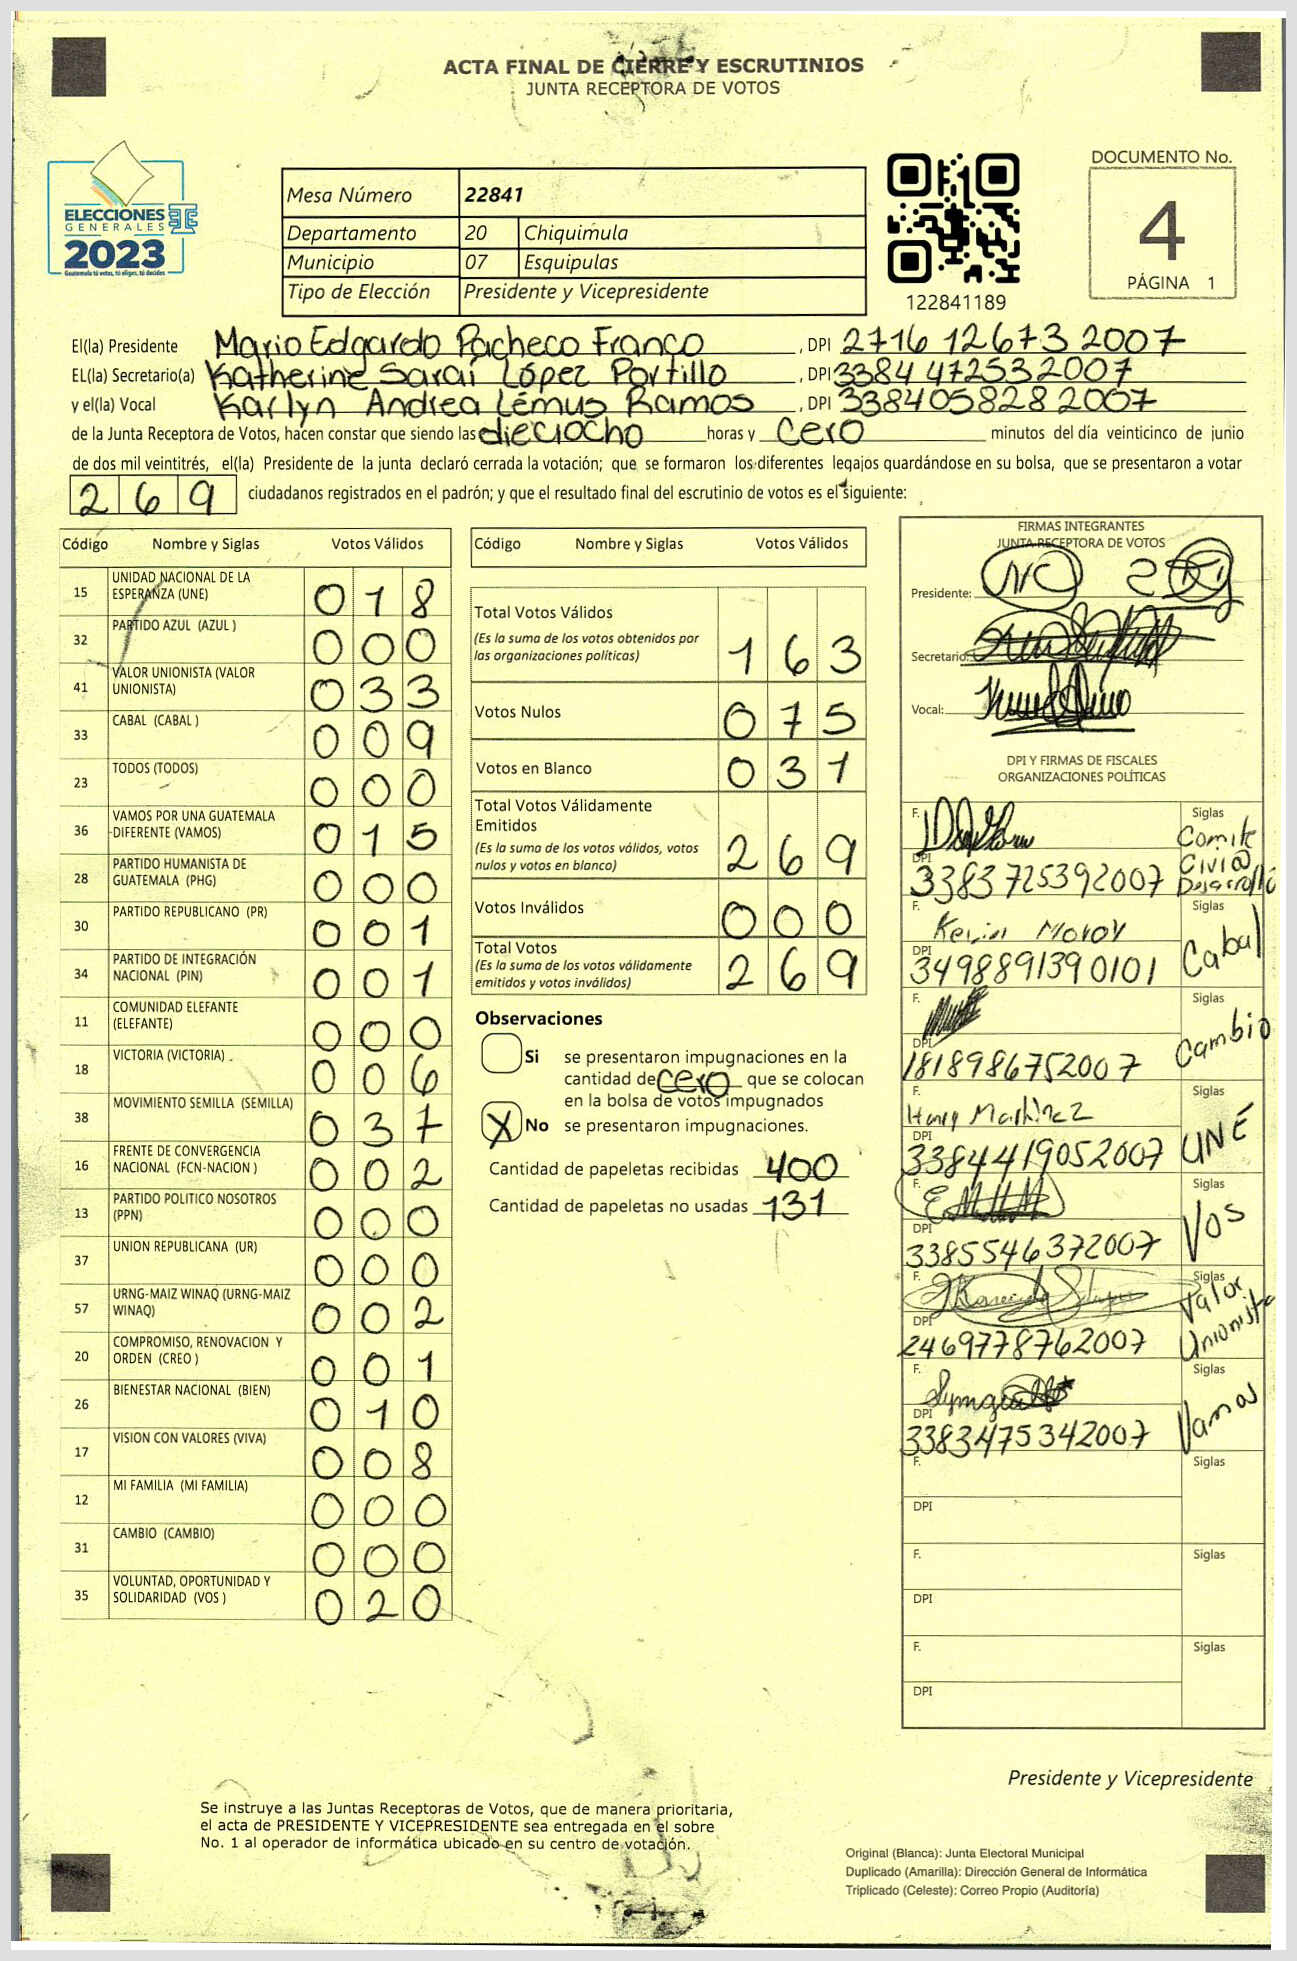 ACTA FINAL DE CIERRE Y ESCRUTINIOS
JUNTA RECEPTORA DE VOTOS
ELECCIONES
GENERALES
2023
Guatemala tú votas, tú eliges, tú decides
Mesa Número 22841
Departamento 20 Chiquimula
Municipio 07 Esquipulas
Tipo de Elección Presidente y Vicepresidente
122841189
DOCUMENTO No.
4
PÁGINA 1
El(la) Presidente Mario Edgardo Pacheco Franco, DPI 2716 12673 2007
EL(la) Secretario(a) Katherine Saraí López Portillo, DPI 3384 47253 2007
y el(la) Vocal Karlyn Andrea Lémus Ramos, DPI 3384058282007
de la Junta Receptora de Votos, hacen constar que siendo las dieciocho horas y cero minutos del día veinticinco de junio
de dos mil veintitrés, el(la) Presidente de la junta declaró cerrada la votación; que se formaron los diferentes legajos guardándose en su bolsa, que se presentaron a votar
269 ciudadanos registrados en el padrón; y que el resultado final del escrutinio de votos es el siguiente:
Código Nombre y Siglas Votos Válidos
15 UNIDAD NACIONAL DE LA ESPERANZA (UNE) 018
32 PARTIDO AZUL (AZUL ) 000
41 VALOR UNIONISTA (VALOR UNIONISTA) 033
33 CABAL (CABAL ) 009
23 TODOS (TODOS) 000
36 VAMOS POR UNA GUATEMALA DIFERENTE (VAMOS) 015
28 PARTIDO HUMANISTA DE GUATEMALA (PHG) 000
30 PARTIDO REPUBLICANO (PR) 001
34 PARTIDO DE INTEGRACIÓN NACIONAL (PIN) 001
11 COMUNIDAD ELEFANTE (ELEFANTE) 000
18 VICTORIA (VICTORIA) 006
38 MOVIMIENTO SEMILLA (SEMILLA) 037
16 FRENTE DE CONVERGENCIA NACIONAL (FCN-NACION ) 002
13 PARTIDO POLITICO NOSOTROS (PPN) 000
37 UNION REPUBLICANA (UR) 000
57 URNG-MAIZ WINAQ (URNG-MAIZ WINAQ) 002
20 COMPROMISO, RENOVACION Y ORDEN (CREO ) 001
26 BIENESTAR NACIONAL (BIEN) 010
17 VISION CON VALORES (VIVA) 008
12 MI FAMILIA (MI FAMILIA) 000
31 CAMBIO (CAMBIO) 000
35 VOLUNTAD, OPORTUNIDAD Y SOLIDARIDAD (VOS ) 020
Código Nombre y Siglas Votos Válidos
Total Votos Válidos
(Es la suma de los votos obtenidos por
las organizaciones políticas) 163
Votos Nulos 075
Votos en Blanco 031
Total Votos Válidamente
Emitidos
(Es la suma de los votos válidos, votos
nulos y votos en blanco) 269
Votos Inválidos 000
Total Votos
(Es la suma de los votos válidamente
emitidos y votos inválidos) 269
Observaciones
Si se presentaron impugnaciones en la
cantidad de cero que se colocan
en la bolsa de votos impugnados
X No se presentaron impugnaciones.
Cantidad de papeletas recibidas 400
Cantidad de papeletas no usadas 131
FIRMAS INTEGRANTES
JUNTA RECEPTORA DE VOTOS
Presidente:
Secretario:
Vocal:
DPI Y FIRMAS DE FISCALES
ORGANIZACIONES POLÍTICAS
F. Siglas Comite Civico Desarrollo
DPI 3383725392007
F. Kevin Siglas Cabal
DPI 3498891390101
F. Siglas Cambio
DPI 1818986752007
F. Harry Martínez Siglas UNE
DPI 3384419052007
F. Siglas VOS
DPI 3385546372007
F. Siglas Valor Unionista
DPI 2469778762007
F. Siglas Vamos
DPI 3383475342007
F. Siglas
DPI
F. Siglas
DPI
F. Siglas
DPI
Presidente y Vicepresidente
Se instruye a las Juntas Receptoras de Votos, que de manera prioritaria,
el acta de PRESIDENTE Y VICEPRESIDENTE sea entregada en el sobre
No. 1 al operador de informática ubicado en su centro de votación.
Original (Blanca): Junta Electoral Municipal
Duplicado (Amarilla): Dirección General de Informática
Triplicado (Celeste): Correo Propio (Auditoría)